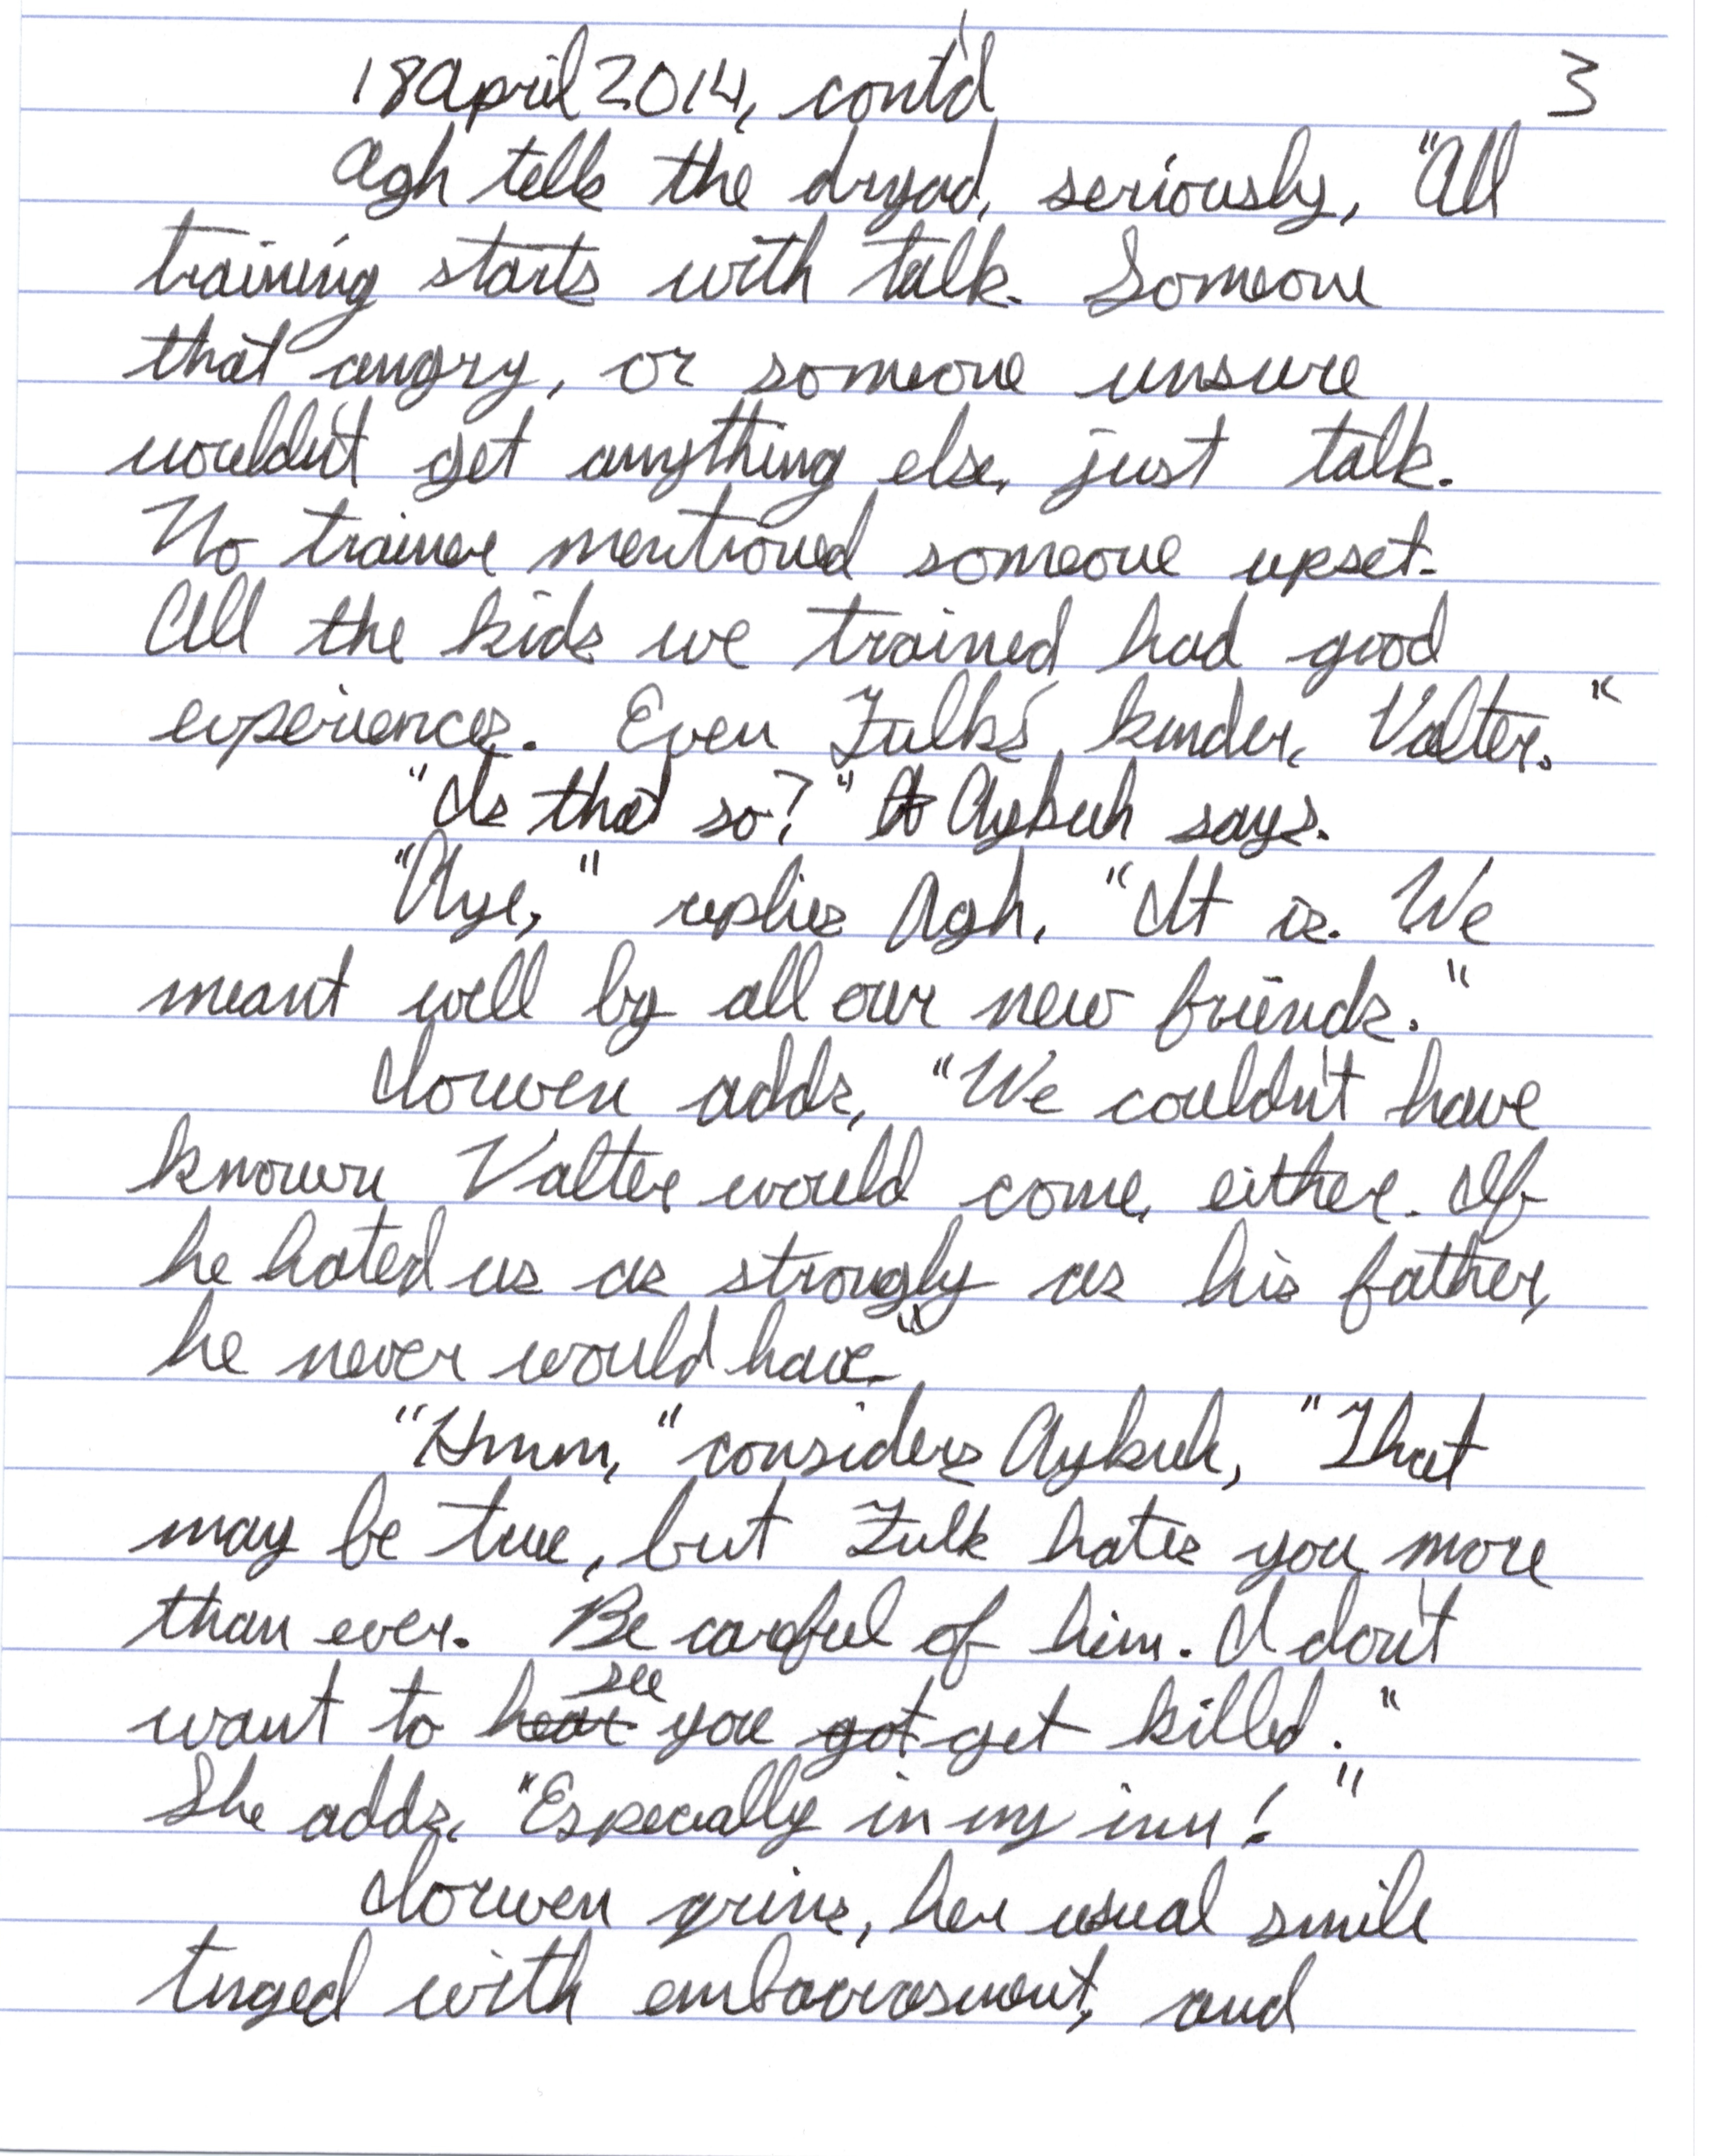 18 April 2014, cont'd 3
Agh tells the dryad, seriously, "All
training starts with talk. Someone
that angry, or someone unsure
wouldn't get anything else, just talk.
No trainer mentioned someone upset.
All the kids we trained had good
experiences. Even Fulk's kinder, Valter."
"Is that so?" A Aykuh says.
"Aye," replies Agh, "It is. We
meant well by all our new friends."
Iorwen adds, "We couldn't have
known Valter would come, either. If
he hated us as strongly as his father,
he never would have."
"Hmm," considers Aykuh, "That
may be true, but Fulk hates you more
than ever. Be careful of him. I don't
want to hear see you got get killed."
She adds, "Especially in my inn!"
Iorwen grins, her usual smile
tinged with embarrasment, and